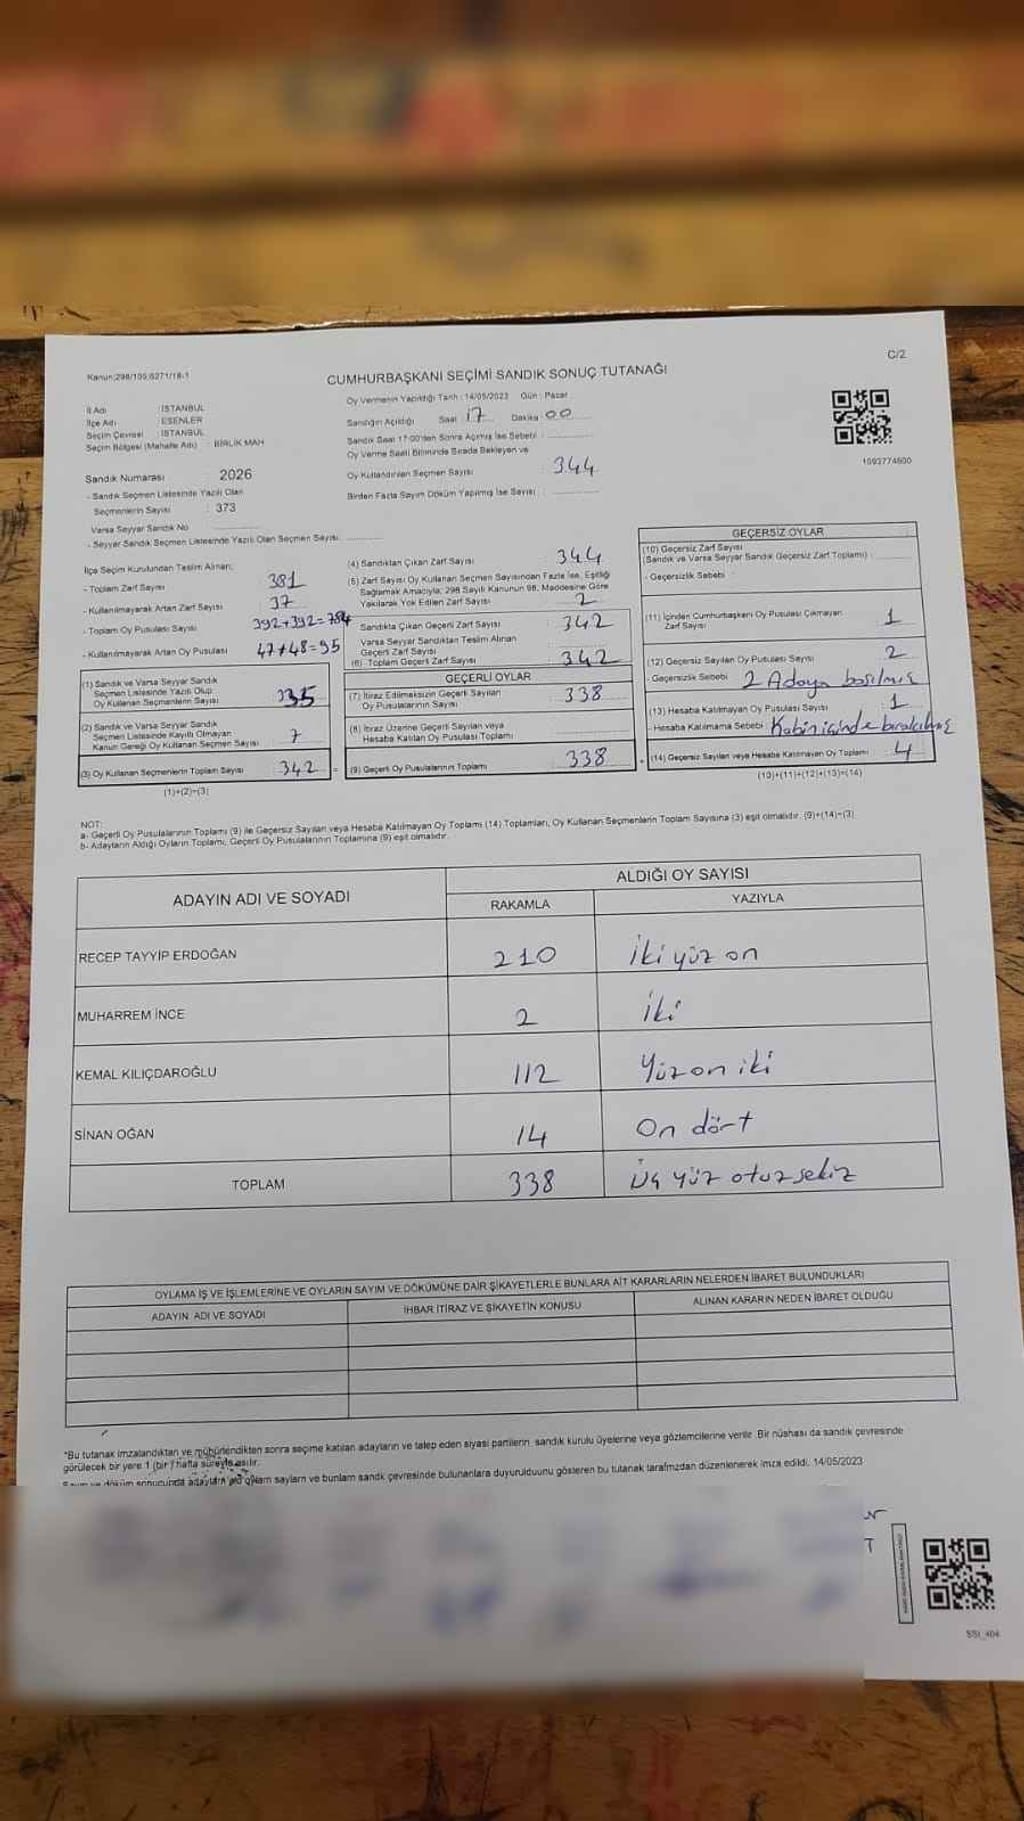 C/2
Kanun:298/105;6271/18-1
CUMHURBAŞKANI SEÇİMİ SANDIK SONUÇ TUTANAĞI
İl Adı : İSTANBUL
İlçe Adı : ESENLER
Seçim Çevresi : İSTANBUL
Seçim Bölgesi (Mahalle Adı) : BİRLİK MAH
Sandık Numarası 2026
- Sandık Seçmen Listesinde Yazılı Olan
Seçmenlerin Sayısı : 373
Varsa Seyyar Sandık No
- Seyyar Sandık Seçmen Listesinde Yazılı Olan Seçmen Sayısı:
Oy Vermenin Yapıldığı Tarih : 14/05/2023 Gün : Pazar
Sandığın Açıldığı Saat 17 Dakika 00
Sandık Saat 17:00'den Sonra Açılmış İse Sebebi :
Oy Verme Saati Bitiminde Sırada Bekleyen ve
Oy Kullandırılan Seçmen Sayısı 344
Birden Fazla Sayım Döküm Yapılmış İse Sayısı :
1093774600
İlçe Seçim Kurulundan Teslim Alınan;
- Toplam Zarf Sayısı 381
- Kullanılmayarak Artan Zarf Sayısı 37
- Toplam Oy Pusulası Sayısı 392+392=784
- Kullanılmayarak Artan Oy Pusulası 47+48=95
(1) Sandık ve Varsa Seyyar Sandık
Seçmen Listesinde Yazılı Olup
Oy Kullanan Seçmenlerin Sayısı 335
(2) Sandık ve Varsa Seyyar Sandık
Seçmen Listesinde Kayıtlı Olmayan
Kanun Gereği Oy Kullanan Seçmen Sayısı 7
(3) Oy Kullanan Seçmenlerin Toplam Sayısı 342 =
(1)+(2)=(3)
(4) Sandıktan Çıkan Zarf Sayısı 344
(5) Zarf Sayısı Oy Kullanan Seçmen Sayısından Fazla İse, Eşitliği
Sağlamak Amacıyla; 298 Sayılı Kanunun 98. Maddesine Göre
Yakılarak Yok Edilen Zarf Sayısı 2
Sandıkta Çıkan Geçerli Zarf Sayısı 342
Varsa Seyyar Sandıktan Teslim Alınan
Geçerli Zarf Sayısı
(6) Toplam Geçerli Zarf Sayısı 342
GEÇERLİ OYLAR
(7) İtiraz Edilmeksizin Geçerli Sayılan
Oy Pusulasının Sayısı 338
(8) İtiraz Üzerine Geçerli Sayılan veya
Hesaba Katılan Oy Pusulası Toplamı
(9) Geçerli Oy Pusulalarının Toplamı 338 +
GEÇERSİZ OYLAR
(10) Geçersiz Zarf Sayısı
(Sandık ve Varsa Seyyar Sandık Geçersiz Zarf Toplamı) :
- Geçersizlik Sebebi :
(11) İçinden Cumhurbaşkanı Oy Pusulası Çıkmayan
Zarf Sayısı 1
(12) Geçersiz Sayılan Oy Pusulası Sayısı 2
- Geçersizlik Sebebi 2 Adaya basılmış
(13) Hesaba Katılmayan Oy Pusulası Sayısı 1
- Hesaba Katılmama Sebebi Kabin içinde bırakılmış
(14) Geçersiz Sayılan veya Hesaba Katılmayan Oy Toplamı 4
(10)+(11)+(12)+(13)=(14)
NOT:
a- Geçerli Oy Pusulalarının Toplamı (9) ile Geçersiz Sayılan veya Hesaba Katılmayan Oy Toplamı (14) Toplamları, Oy Kullanan Seçmenlerin Toplam Sayısına (3) eşit olmalıdır. (9)+(14)=(3)
b- Adayların Aldığı Oyların Toplamı, Geçerli Oy Pusulalarının Toplamına (9) eşit olmalıdır.
ADAYIN ADI VE SOYADI ALDIĞI OY SAYISI
RAKAMLA YAZIYLA
RECEP TAYYİP ERDOĞAN 210 İki yüz on
MUHARREM İNCE 2 İki
KEMAL KILIÇDAROĞLU 112 Yüz on iki
SİNAN OĞAN 14 On dört
TOPLAM 338 Üç yüz otuz sekiz
OYLAMA İŞ VE İŞLEMLERİNE VE OYLARIN SAYIM VE DÖKÜMÜNE DAİR ŞİKAYETLERLE BUNLARA AİT KARARLARIN NELERDEN İBARET BULUNDUKLARI
ADAYIN ADI VE SOYADI İHBAR İTİRAZ VE ŞİKAYETİN KONUSU ALINAN KARARIN NEDEN İBARET OLDUĞU
*Bu tutanak imzalandıktan ve mühürlendikten sonra seçime katılan adayların ve talep eden siyasi partilerin sandık kurulu üyelerine veya gözlemcilerine verilir. Bir nüshası da sandık çevresinde
görülecek bir yere 1 (bir) hafta süreyle asılır.
Sayım ve döküm sonucunda adayların aldığı oyların sayıları ve bunların sandık çevresinde bulunanlara duyurulduğunu gösteren bu tutanak tarafımızdan düzenlenerek imza edildi. 14/05/2023
SSI_404